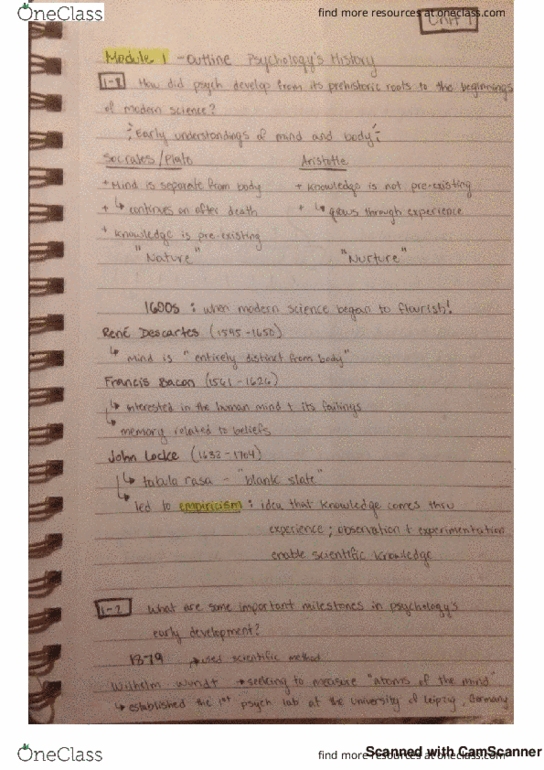 OneClass
find more resources at oneclass.com
OneClass
find more resources at oneclass.com
Unit 1
Module 1 - Outline Psychology's History
1-1 How did psych develop from its prehistoric roots to the beginnings
of modern science?
Early understandings of mind and body:
Socrates/Plato Aristotle
+ Mind is separate from body + Knowledge is not pre-existing
+ ↳ continues on after death + ↳ grows through experience
+ Knowledge is pre-existing
"Nature" "Nurture"
1600s : when modern science began to flourish!
René Descartes (1595-1650)
↳ mind is "entirely distinct from body"
Francis Bacon (1561-1626)
↳ interested in the human mind + its failings
↳ memory related to beliefs
John Locke (1632-1704)
↳ tabula rasa - "blank slate"
↳ led to empiricism : idea that knowledge comes thru
experience ; observation + experimentation
enable scientific knowledge
1-2 What are some important milestones in psychology's
early development?
1879 → used scientific method
Wilhelm Wundt → seeking to measure "atoms of the mind"
↳ established the 1st psych lab at the university of Leipzig, Germany
OneClass
find more resources at oneclass.com
Scanned with CamScanner